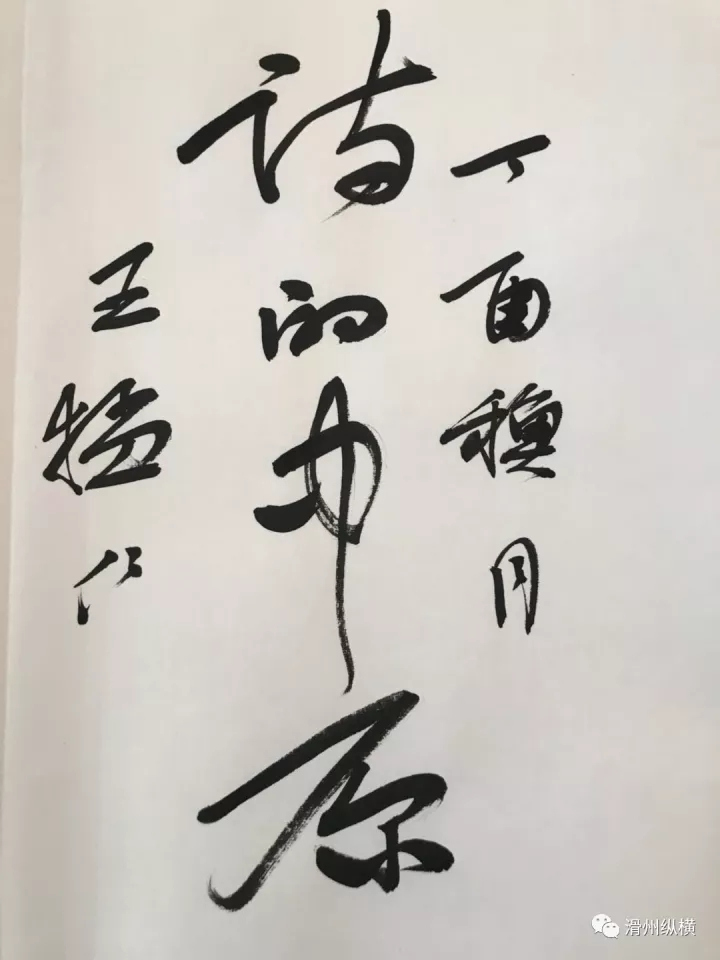 丁酉穐月
诗的中原
王猛仁
滑州纵横